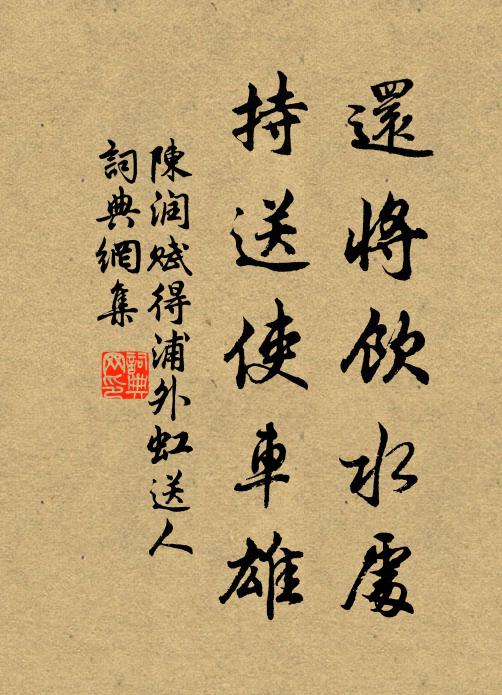 還將飲水處
持送使車雄
陳润赋得浦外虹送人
詞典網集
詞典网印